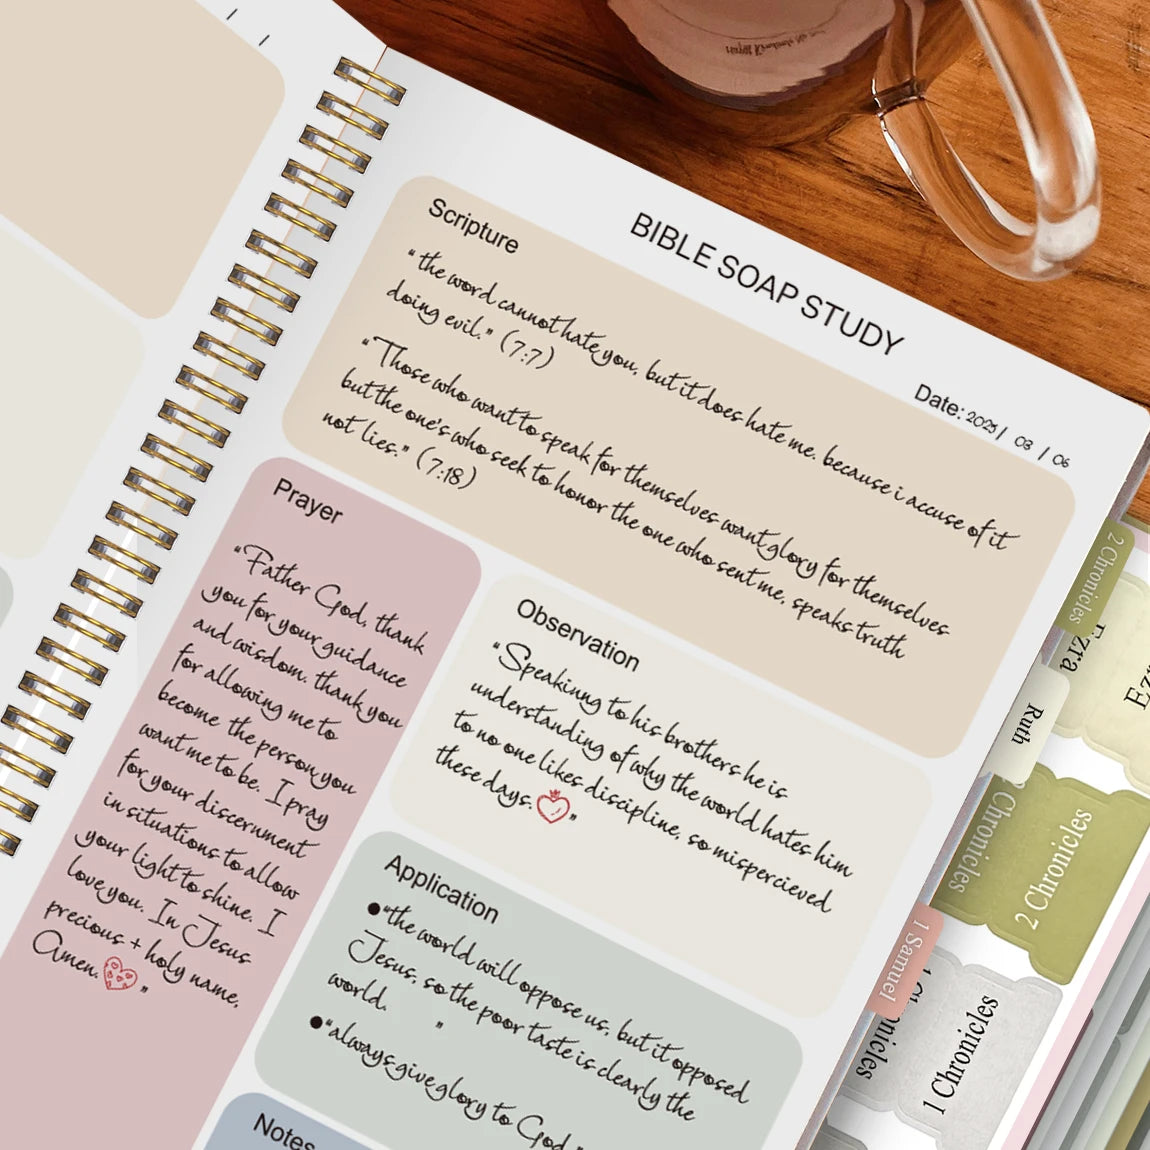 BIBLE SOAP STUDY
Date: 2025 / 03 / 06
Scripture
“the word cannot hate you, but it does hate me, because i accuse of it
doing evil.” (7:7)
“Those who want to speak for themselves want glory for themselves
but the one's who seek to honor the one who sent me, speaks truth
not lies.” (7:18)
Prayer
“Father God, thank
you for your guidance
and wisdom. thank you
for allowing me to
become the person you
want me to be. I pray
for your discernment
in situations to allow
your light to shine. I
love you. In Jesus
precious + holy name,
Amen.”
Observation
“Speakinng to his brothers he is
understanding of why the world hates him
to no one likes discipline, so mispercieved
these days.”
Application
●“the world will oppose us, but it opposed
Jesus, so the poor taste is clearly the
world. ”
●“always give glory to God.”
Notes
2 Chronicles
Ezra
Ruth
Chronicles
2 Chronicles
1 Samuel
1 Chronicles
1 Chronicles